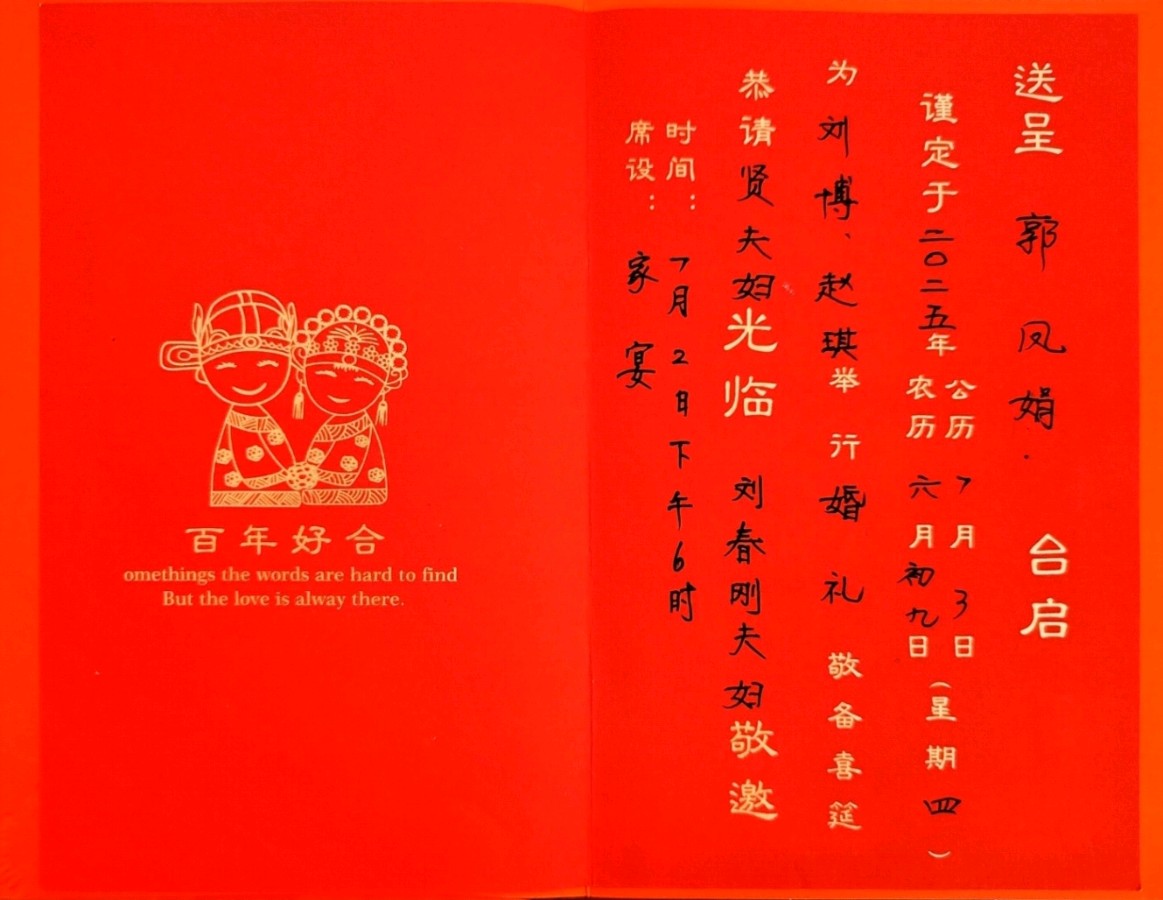 送呈 郭凤娟. 台启
谨定于二〇二五年 公历7月3日 农历六月初九日(星期四)
为刘博、赵琪举行婚礼 敬备喜筵
恭请贤夫妇光临 刘春刚夫妇敬邀
时间:7月2日下午6时
席设:家宴
百年好合
omethings the words are hard to find
But the love is alway there.